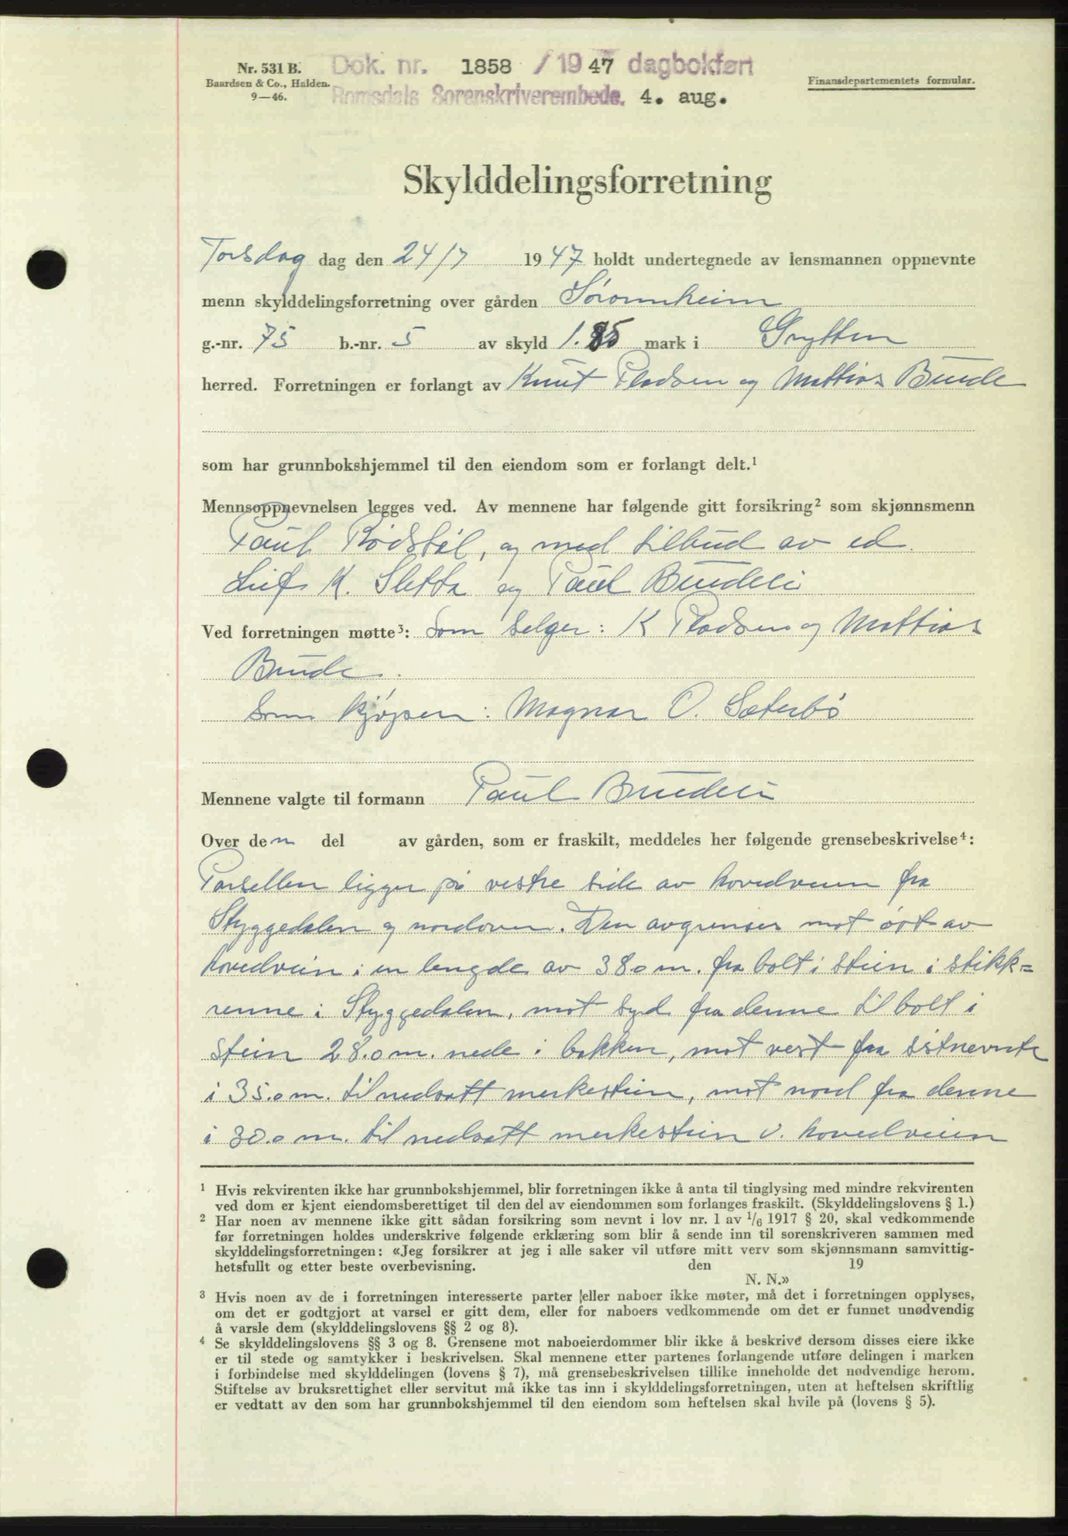 Nr. 531 B.
Baardsen & Co., Halden.
9—46.
Dok. nr. 1858 / 1947 dagbokført
Romsdals Sorenskriverembede. 4. aug.
Finansdepartementets formular.
Skylddelingsforretning
Torsdag dag den 24/7 1947 holdt undertegnede av lensmannen oppnevnte
menn skylddelingsforretning over gården
g.-nr. 75 b.-nr. 5 av skyld 1.85 mark i Grytten
herred. Forretningen er forlangt av Knut Flodsen og Mattias Bunde
som har grunnbokshjemmel til den eiendom som er forlangt delt.¹
Mennsoppnevnelsen legges ved. Av mennene har følgende gitt forsikring² som skjønnsmenn
Paul Rødstøl, og med tilbud av ed
Leif K. Sletta og Paul Bundeli
Ved forretningen møtte³: Som selger: K Flodsen og Mattias
Bunde.
Som kjøper: Magnar O. Sæterbø
Mennene valgte til formann Paul Bundeli
Over den del av gården, som er fraskilt, meddeles her følgende grensebeskrivelse⁴:
Parsellen ligger på vestre side av hovedveien fra
Styggedalen og nordover. Den avgrenses mot øst av
hovedveien i en lengde av 38.0 m. fra bolt i stein i stikk=
renne i Styggedalen, mot syd fra denne til bolt i
stein 28.0 m. nede i bakken, mot vest fra sistnevnte
i 35.0 m. til nedsatt merkestein, mot nord fra denne
i 30.0 m. til nedsatt merkestein v. hovedveien
¹ Hvis rekvirenten ikke har grunnbokshjemmel, blir forretningen ikke å anta til tinglysing med mindre rekvirenten
ved dom er kjent eiendomsberettiget til den del av eiendommen som forlanges fraskilt. (Skylddelingslovens § 1.)
² Har noen av mennene ikke gitt sådan forsikring som nevnt i lov nr. 1 av 1/6 1917 § 20, skal vedkommende
før forretningen holdes underskrive følgende erklæring som blir å sende inn til sorenskriveren sammen med
skylddelingsforretningen: «Jeg forsikrer at jeg i alle saker vil utføre mitt verv som skjønnsmann samvittig-
hetsfullt og etter beste overbevisning. den 19
N. N.»
³ Hvis noen av de i forretningen interesserte parter eller naboer ikke møter, må det i forretningen opplyses,
om det er godtgjort at varsel er gitt dem, eller for naboers vedkommende om det er funnet unødvendig
å varsle dem (skylddelingslovens §§ 2 og 8).
⁴ Se skylddelingslovens §§ 3 og 8. Grensene mot naboeierdommer blir ikke å beskrive dersom disses eiere ikke
er til stede og samtykker i beskrivelsen. Skal mennene etter partenes forlangende utføre delingen i marken
i forbindelse med skylddelingen (lovens § 7), må grensebeskrivelsen tillike inneholde det nødvendige herom.
Stiftelse av bruksrettighet eller servitut må ikke tas inn i skylddelingsforretningen, uten at heftelsen skriftlig
er vedtatt av den som har grunnbokshjemmel til den eiendom som heftelsen skal hvile på (lovens § 5).